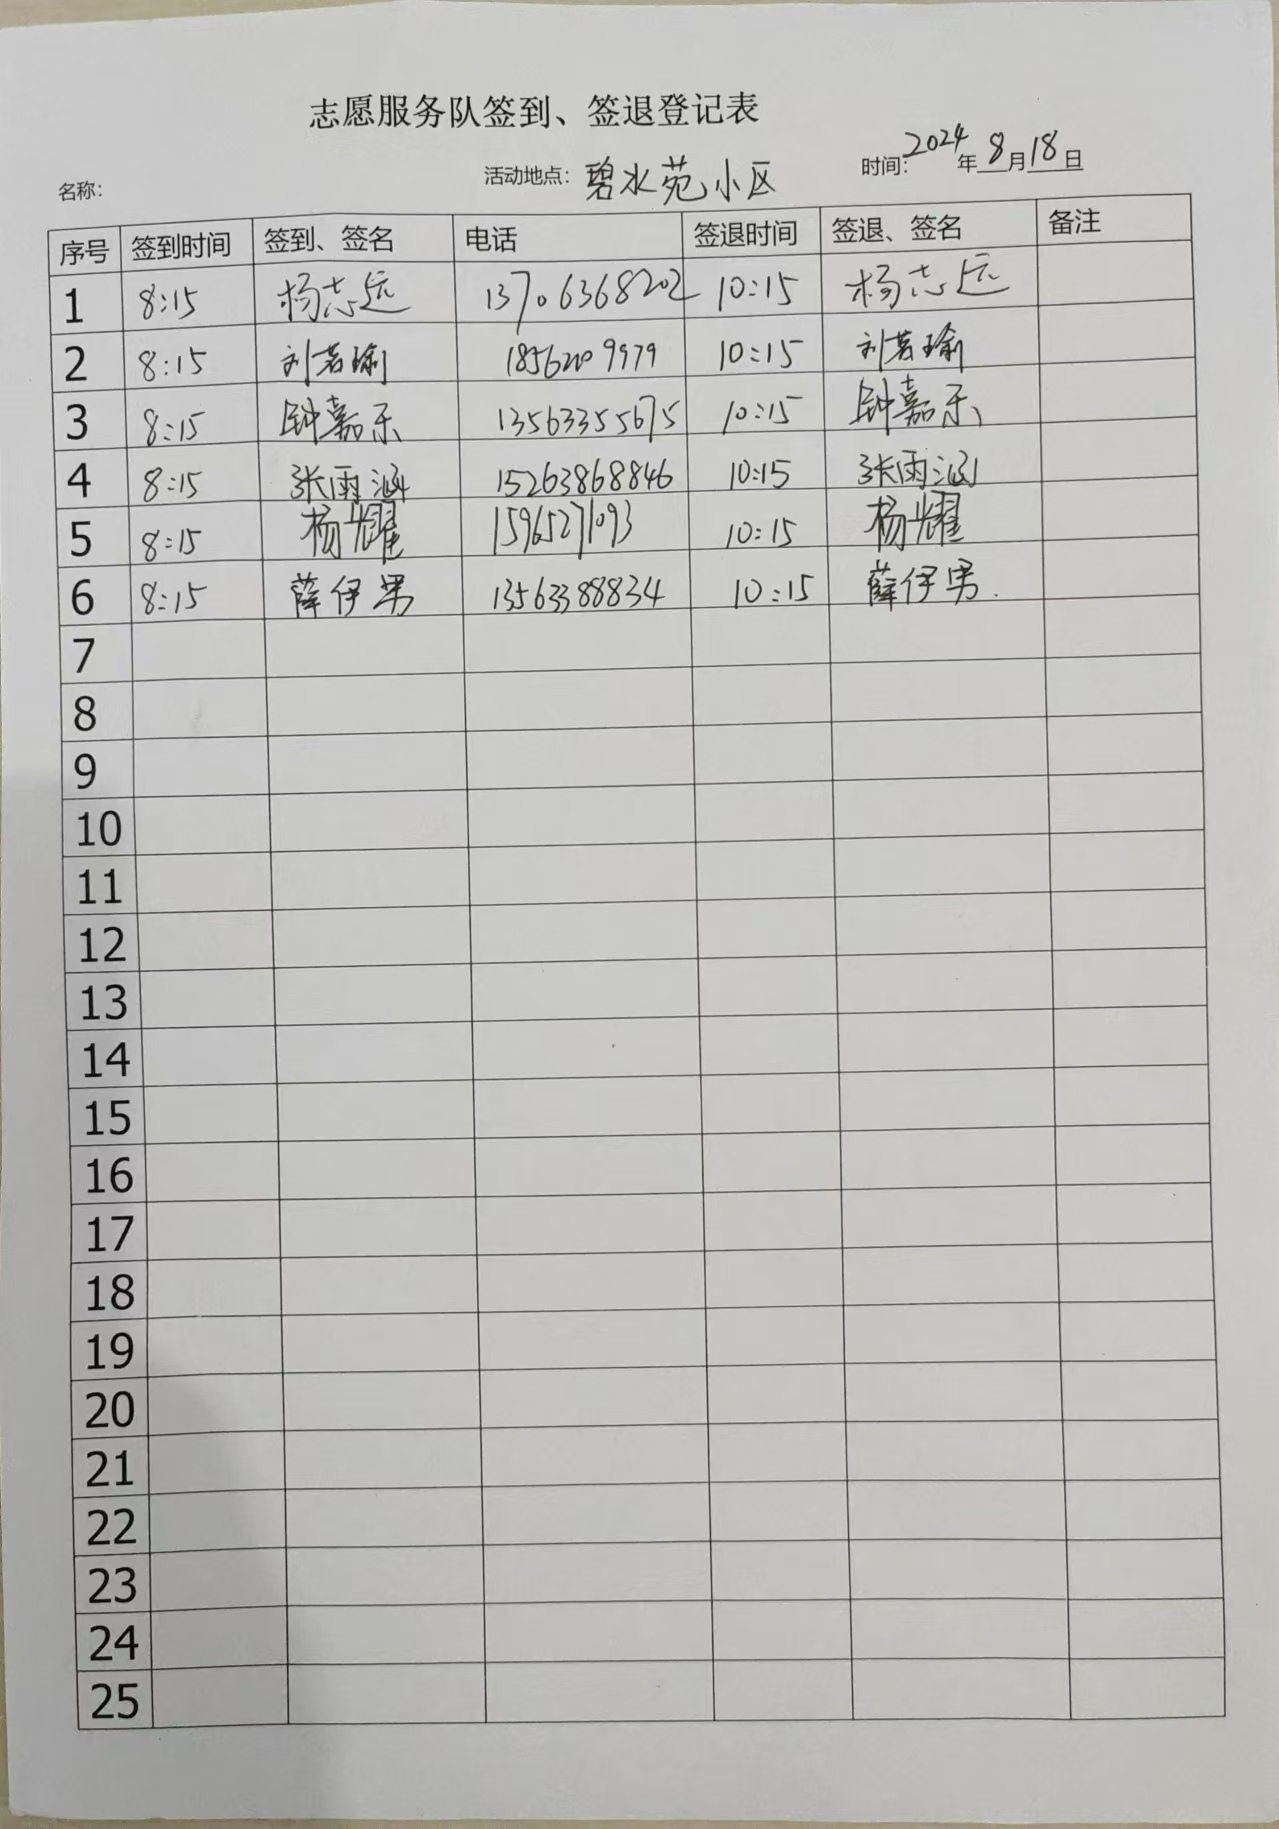 志愿服务队签到、签退登记表
名称： 活动地点：碧水苑小区 时间：2024年8月18日
序号 签到时间 签到、签名 电话 签退时间 签退、签名 备注
1 8:15 杨志远 13706368202 10:15 杨志远
2 8:15 刘若瑜 18562009979 10:15 刘若瑜
3 8:15 钟嘉乐 13563355675 10:15 钟嘉乐
4 8:15 张雨涵 15263868846 10:15 张雨涵
5 8:15 杨耀 15965271093 10:15 杨耀
6 8:15 薛伊男 13563388834 10:15 薛伊男.
7
8
9
10
11
12
13
14
15
16
17
18
19
20
21
22
23
24
25